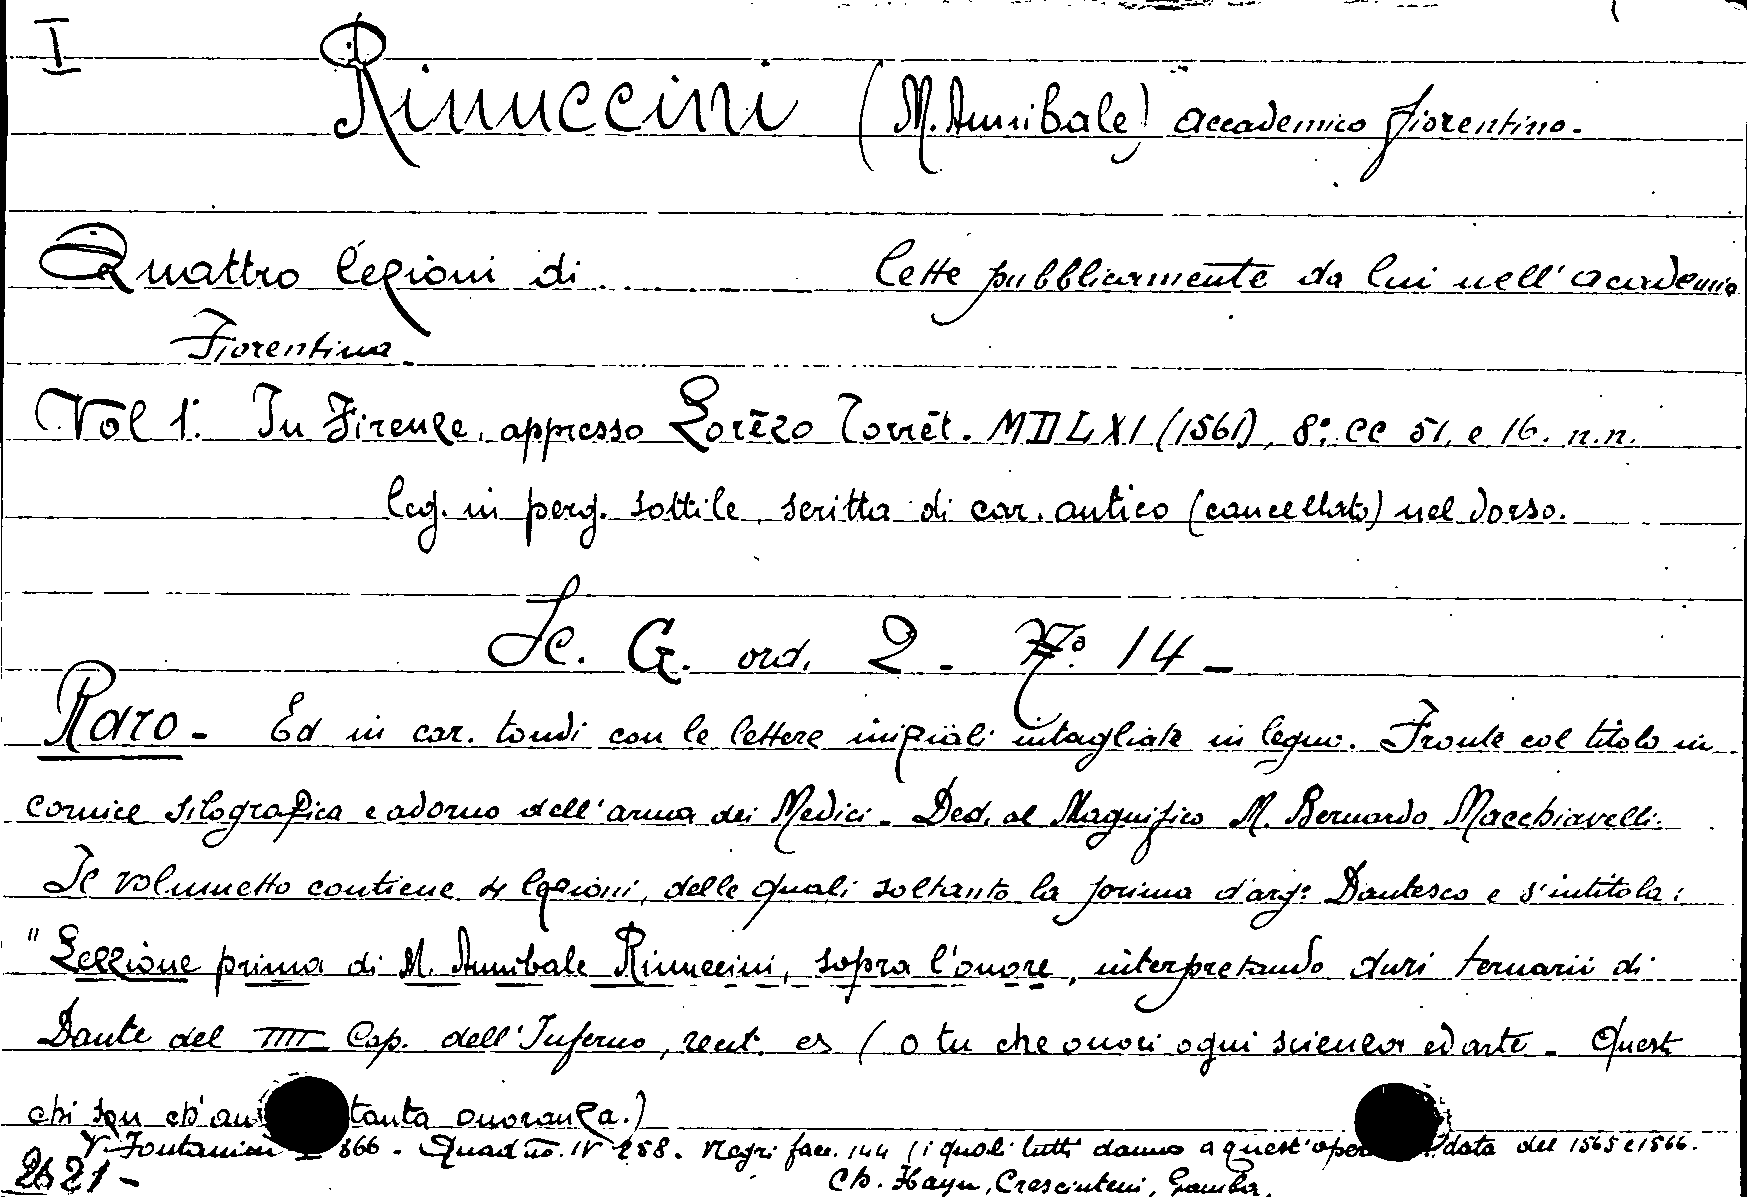 I
Rinuccini (M. Annibale) accademico fiorentino.
Quattro lezioni di ... lette pubblicamente da lui nell'academia
Fiorentina.
Vol 1. In Firenze, appresso Lorēzo Torrēt. MDLXI (1561), 8º. cc 51, e 16. n.n.
leg. in perg. sottile, scritta di car. antico (cancellato) nel dorso.
Sc. G. ord. 2 - Nº. 14 -
Raro - Ed in car. tondi con le lettere iniziali intagliate in legno. Fronte col titolo in
cornice silografica e adorno dell'arma dei Medici - Ded. al Magnifico M. Bernardo Macchiavelli.
Il volumetto contiene 4 lezioni, delle quali soltanto la prima d'argº Dantesco e s'intitola:
"Lezzione prima di M. Annibale Rinuccini, sopra l'onore, interpretando duri ternarii di
Dante del IIII Cap. dell'Inferno, (o tu che onori ogni scienza ed arte - Questi
chi son ch'an tanta onoranza.)
V. Fontanini 866 - Quad IV 258. Negri facc. 144 (i quali tutti danno a quest' data del 1565 e 1566.
2621 - Ch. Haym, Crescimbeni, Gamba.